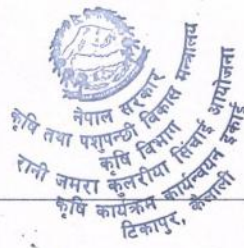 नेपाल सरकार
कृषि तथा पशुपन्छी विकास मन्त्रालय
कृषि विभाग
रानी जमरा कुलरीया सिंचाई आयोजना
कृषि कार्यक्रम कार्यान्वयन इकाई
टिकापुर, कैलाली